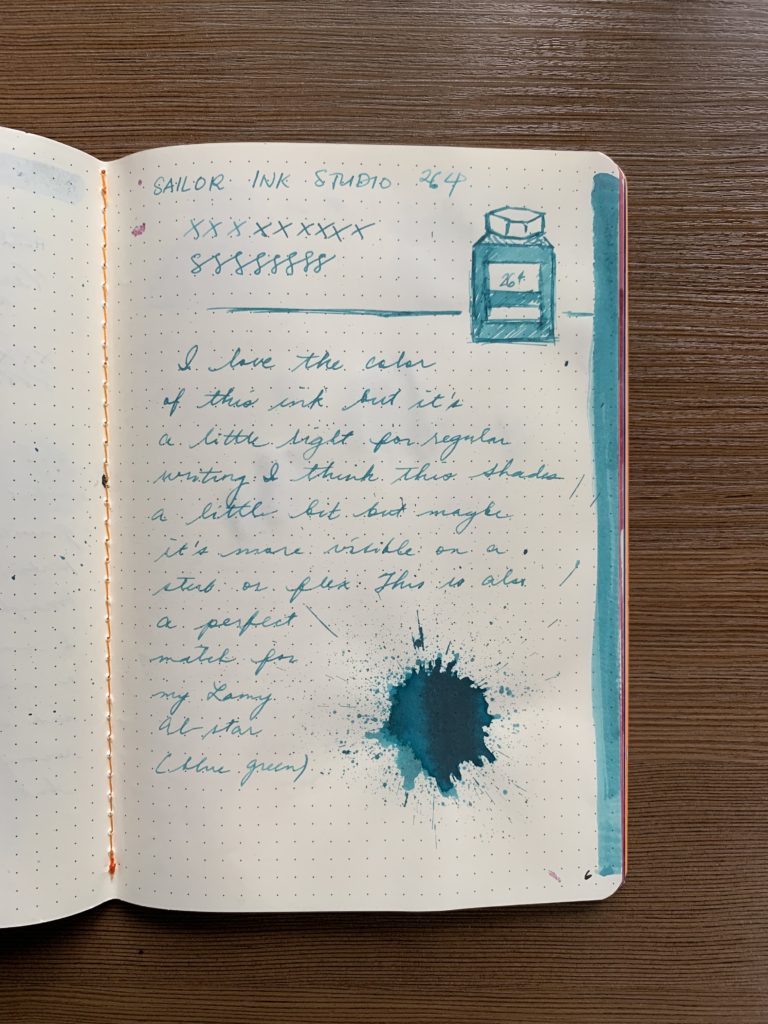 SAILOR INK STUDIO 264
XXXXXXXXXX
88888888
264
I love the color
of this ink but it's
a little light for regular
writing I think this shades
a little bit but maybe
it's more visible on a
stub or flex. This is also
a perfect
match for
my Lamy
al-star
(blue green)
6